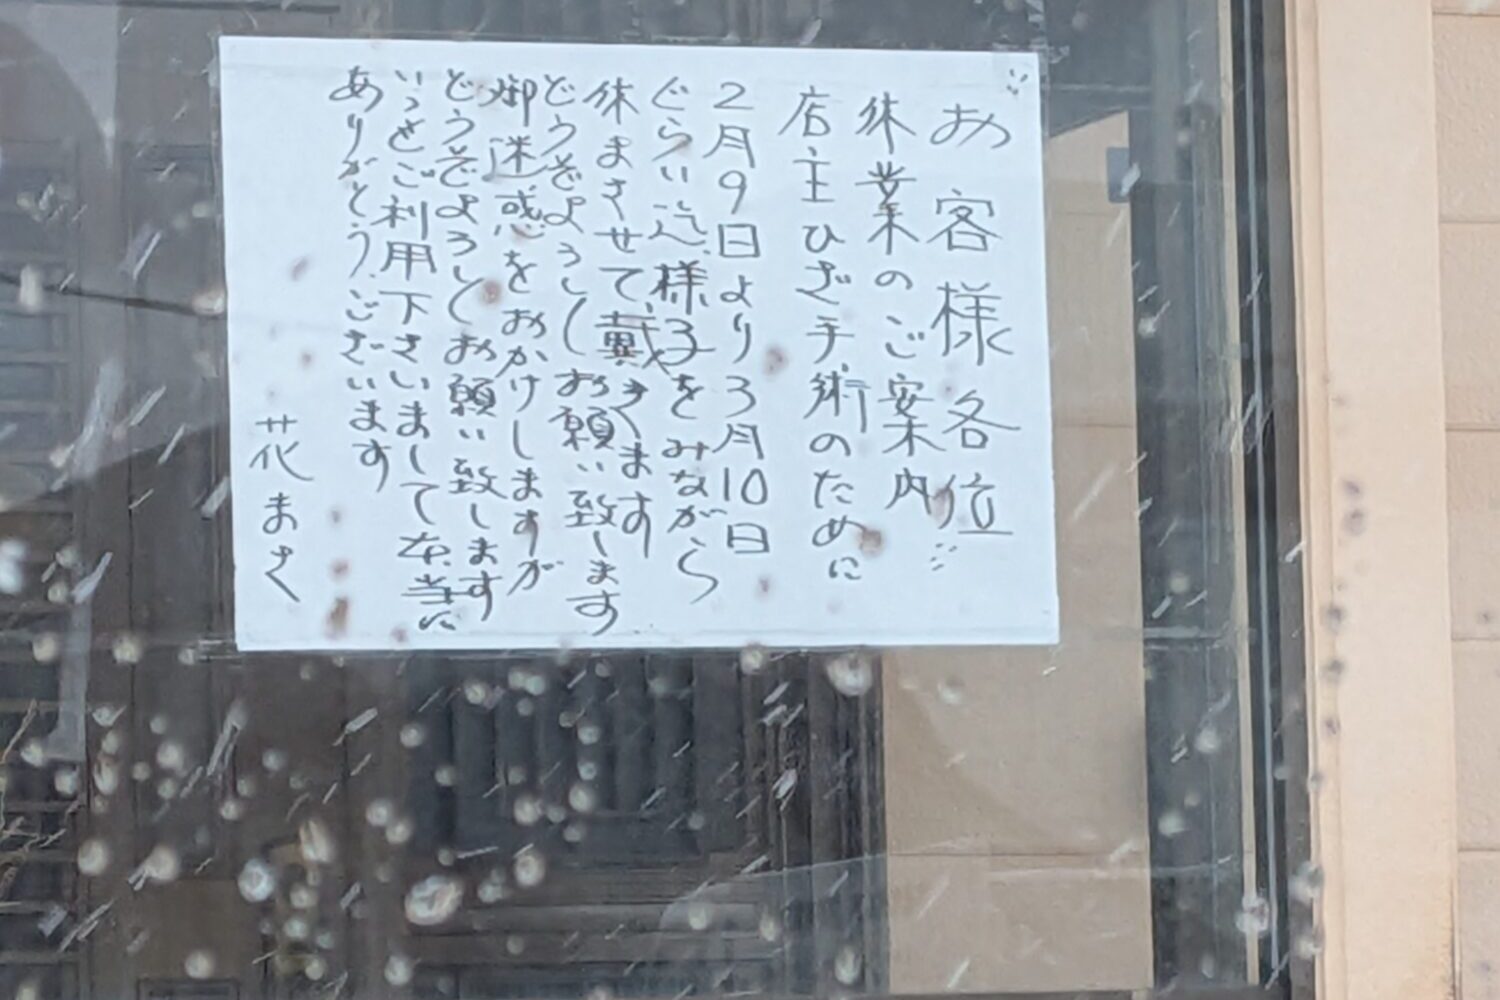 〃お客様各位〃
休業のご案内
店主ひざ手術のために
2月9日より3月10日
ぐらい迄、様子をみながら
休まさせて、戴きます
どうぞよろしくお願い致します
御迷惑をおかけしますが
どうぞよろしくお願い致します
いつもご利用下さいまして本当に
ありがとうございます
花まさく